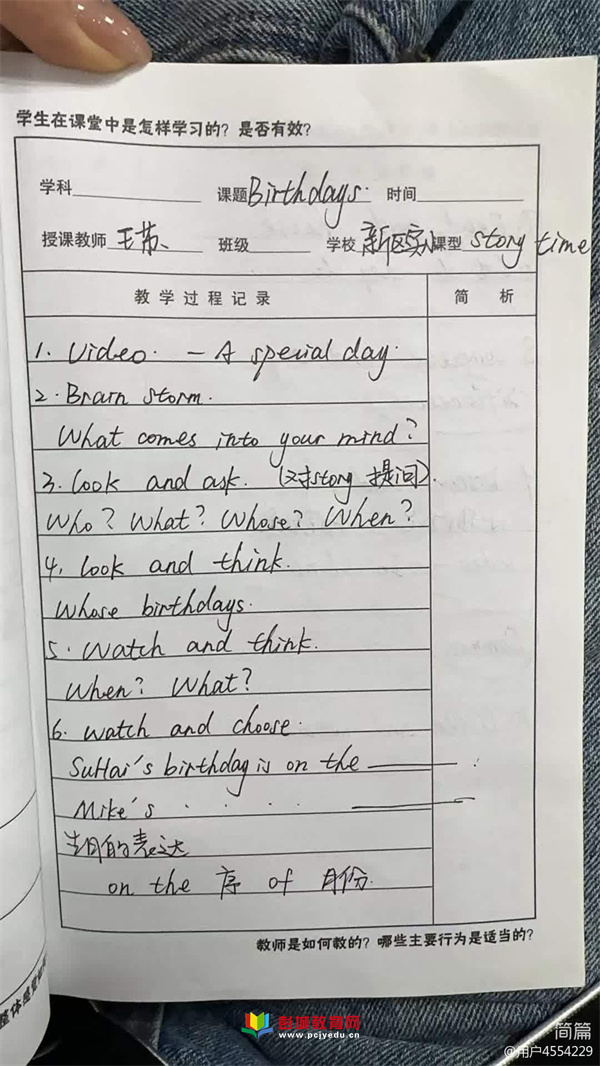 学生在课堂中是怎样学习的？是否有效？
学科 课题 Birthdays. 时间
授课教师 王芾、 班级 学校 新区实小 课型 story time
教学过程记录 简 析
1. Video. — A special day.
2. Brarn storm.
What comes into your mind?
3. look and ask. (对story 提问).
Who? What? Whose? When?
4. look and think.
Whose birthdays.
5. Watch and think.
When? What?
6. Watch and choose.
SuHai's birthday is on the ——— .
Mike's . . . . . ———
生日的表达
on the 序 of 月份.
教师是如何教的？哪些主要行为是适当的？
彭城教育网
www.pcjyedu.cn
简篇
@用户4554229